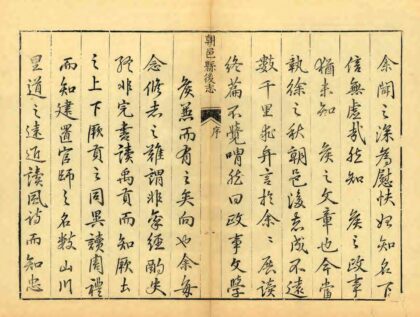 余聞之深為慰快始知名下
信無虛哉然知矦之政事
猶未知矦之文章也今當
執徐之秋朝邑後志成不遠
數千里弁言於余〻展讀
終篇不覺喟然曰政事文學
朝邑縣後志
序
矦兼而有之矣向也余每
念修志之難謂非經酌史
終非完書讀禹貢而知厥土
之上下厥貢之同異讀周禮
而知建置官師之名數山川
里道之遠近讀風詩而知忠